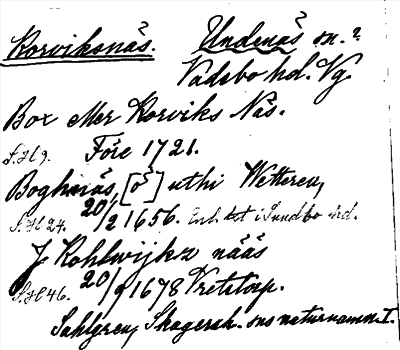 Korviksnäs. Undenäs sn.?
Vadsbo hd. Vg.
Box eller Korviks Näs.
Före 1721.
Boghnäs, [ö] uthi Wetteren,
20/2 1656. Enl. det i Sundbo hd.
J Kohlwijkz nääs
20/9 1678 Vretstorp.
Sahlgren, Skagersh. sns naturnamn I.